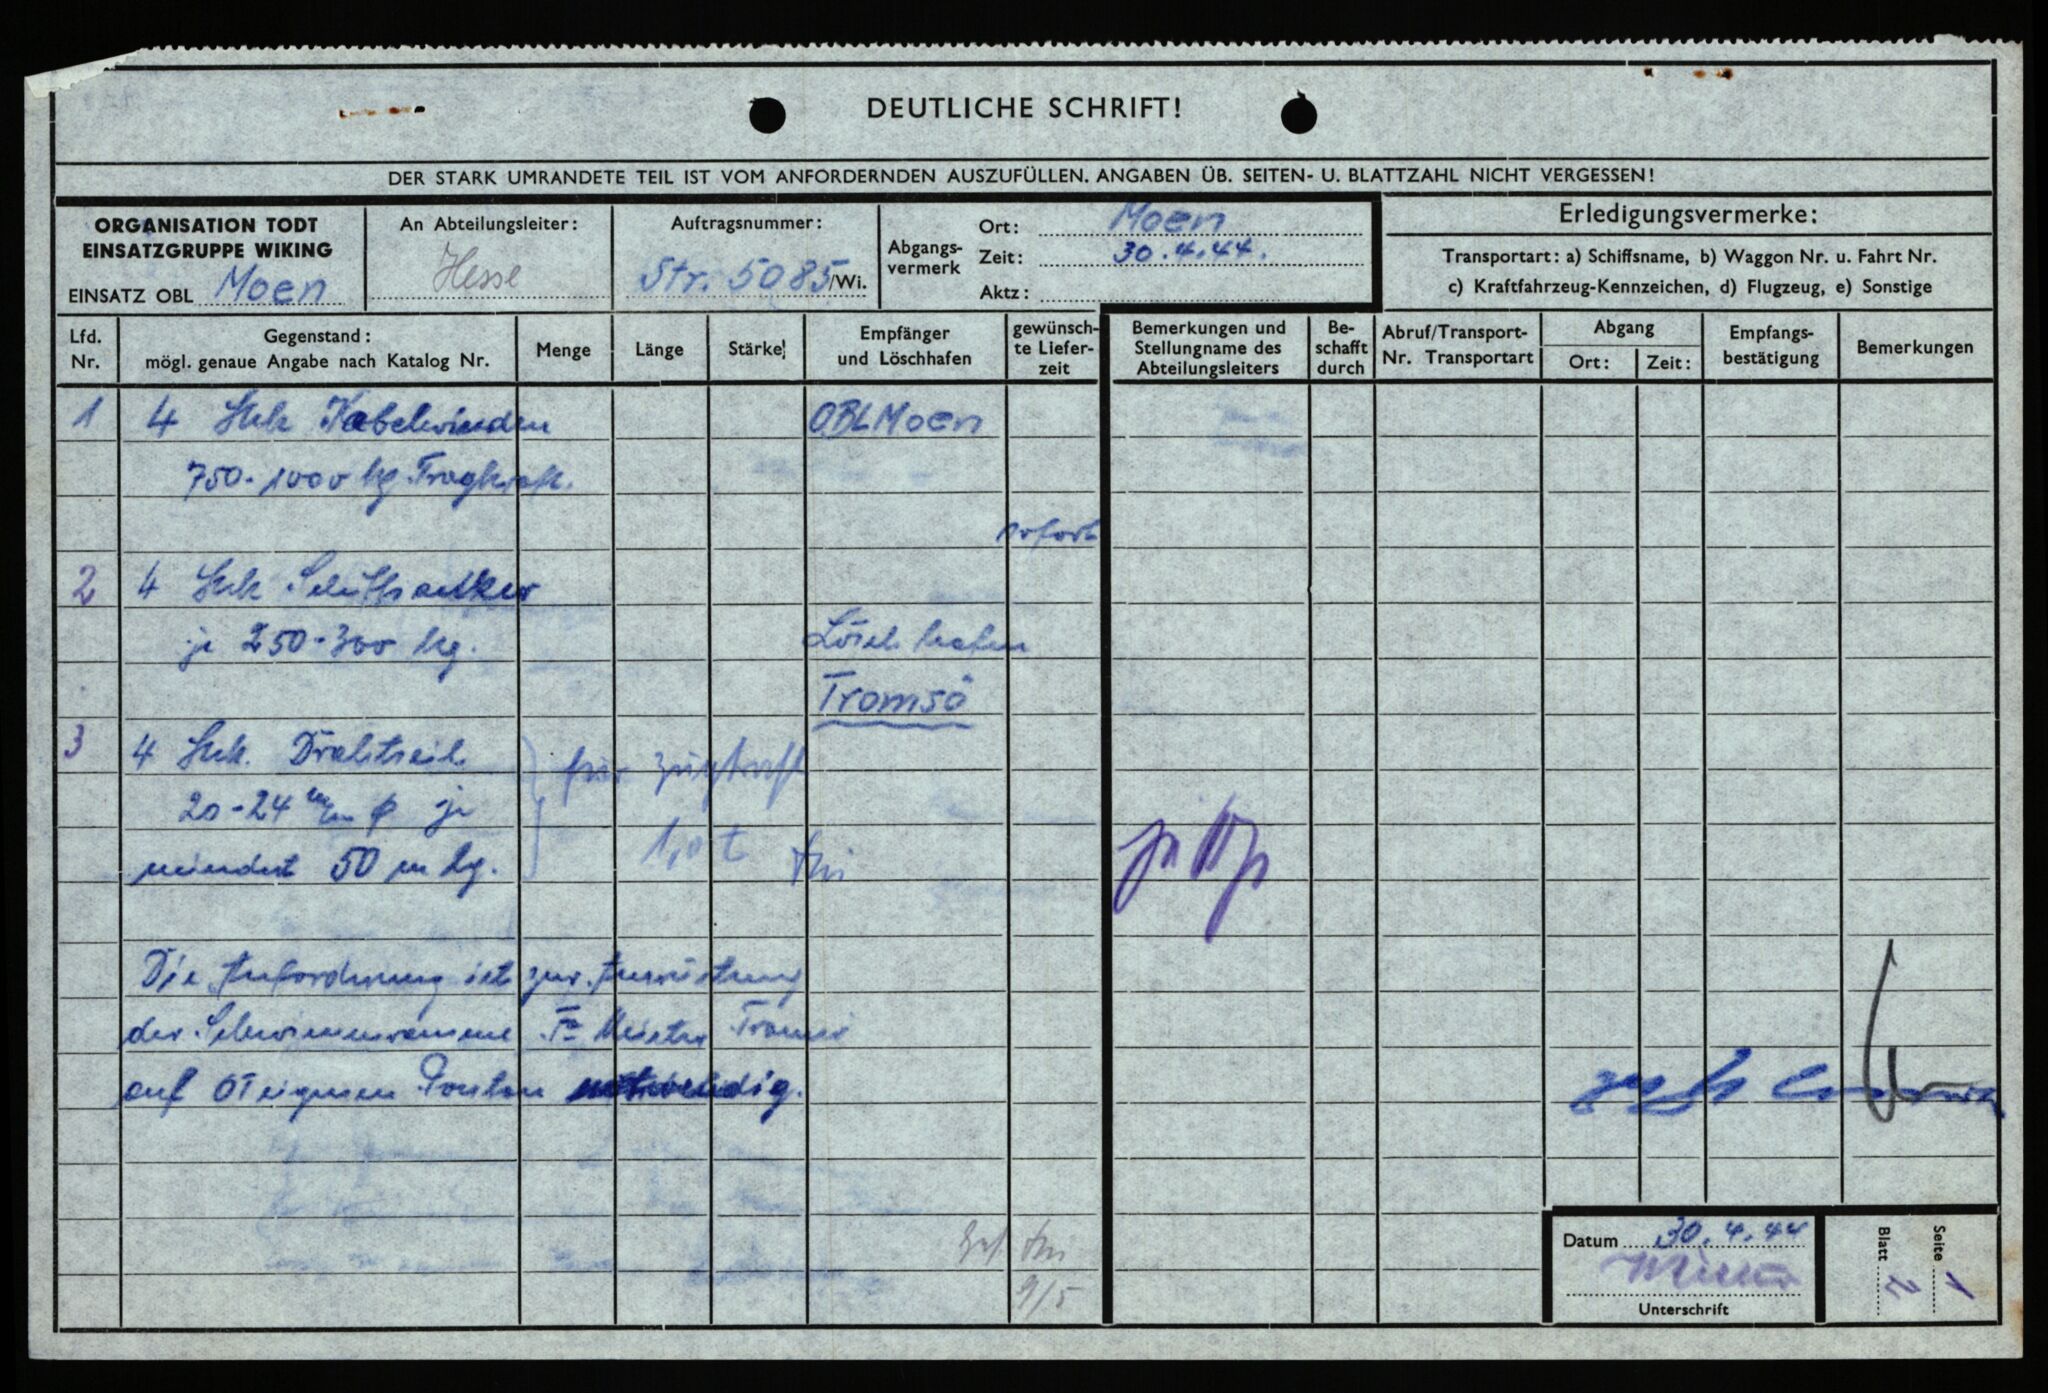 DEUTLICHE SCHRIFT!
DER STARK UMRANDETE TEIL IST VOM ANFORDERNDEN AUSZUFÜLLEN. ANGABEN ÜB. SEITEN- U. BLATTZAHL NICHT VERGESSEN!
ORGANISATION TODT
EINSATZGRUPPE WIKING
EINSATZ OBL Moen
An Abteilungsleiter:
Hesse
Auftragsnummer:
Str. 5085/Wi.
Abgangs-
vermerk
Ort: Moen
Zeit: 30.4.44.
Aktz:
Erledigungsvermerke:
Transportart: a) Schiffsname, b) Waggon Nr. u. Fahrt Nr.
c) Kraftfahrzeug-Kennzeichen, d) Flugzeug, e) Sonstige
Lfd.
Nr.
Gegenstand:
mögl. genaue Angabe nach Katalog Nr.
Menge
Länge
Stärke
Empfänger
und Löschhafen
gewünsch-
te Liefer-
zeit
Bemerkungen und
Stellungname des
Abteilungsleiters
Be-
schafft
durch
Abruf/Transport-
Nr. Transportart
Abgang
Ort:
Zeit:
Empfangs-
bestätigung
Bemerkungen
1 4 Stck Kabelwinden OBL Moen
750-1000 kg Tragkraft.
sofort
2 4 Stck Schiffsanker
je 250-300 kg.
Löschhafen
Tromsö
3 4 Stck. Drahtseile für Zugkraft
20-24 m/m ø je
1,0 t
mindest 50 m lg.
Die Anforderung ist zur Ausrüstung
der Schwimmramme Fa Meister Tromsö
auf OT eigenen Ponton notwendig.
9/5
Datum 30.4.44
Unterschrift
Seite 1
Blatt 2